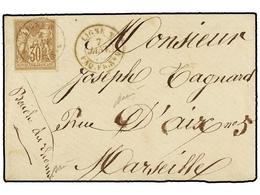 Monsieur
Joseph Tagnard
Rue D'aix n° 5
Marseille
Bouche du Rhone
30
LIGNE
PAQ. FR.